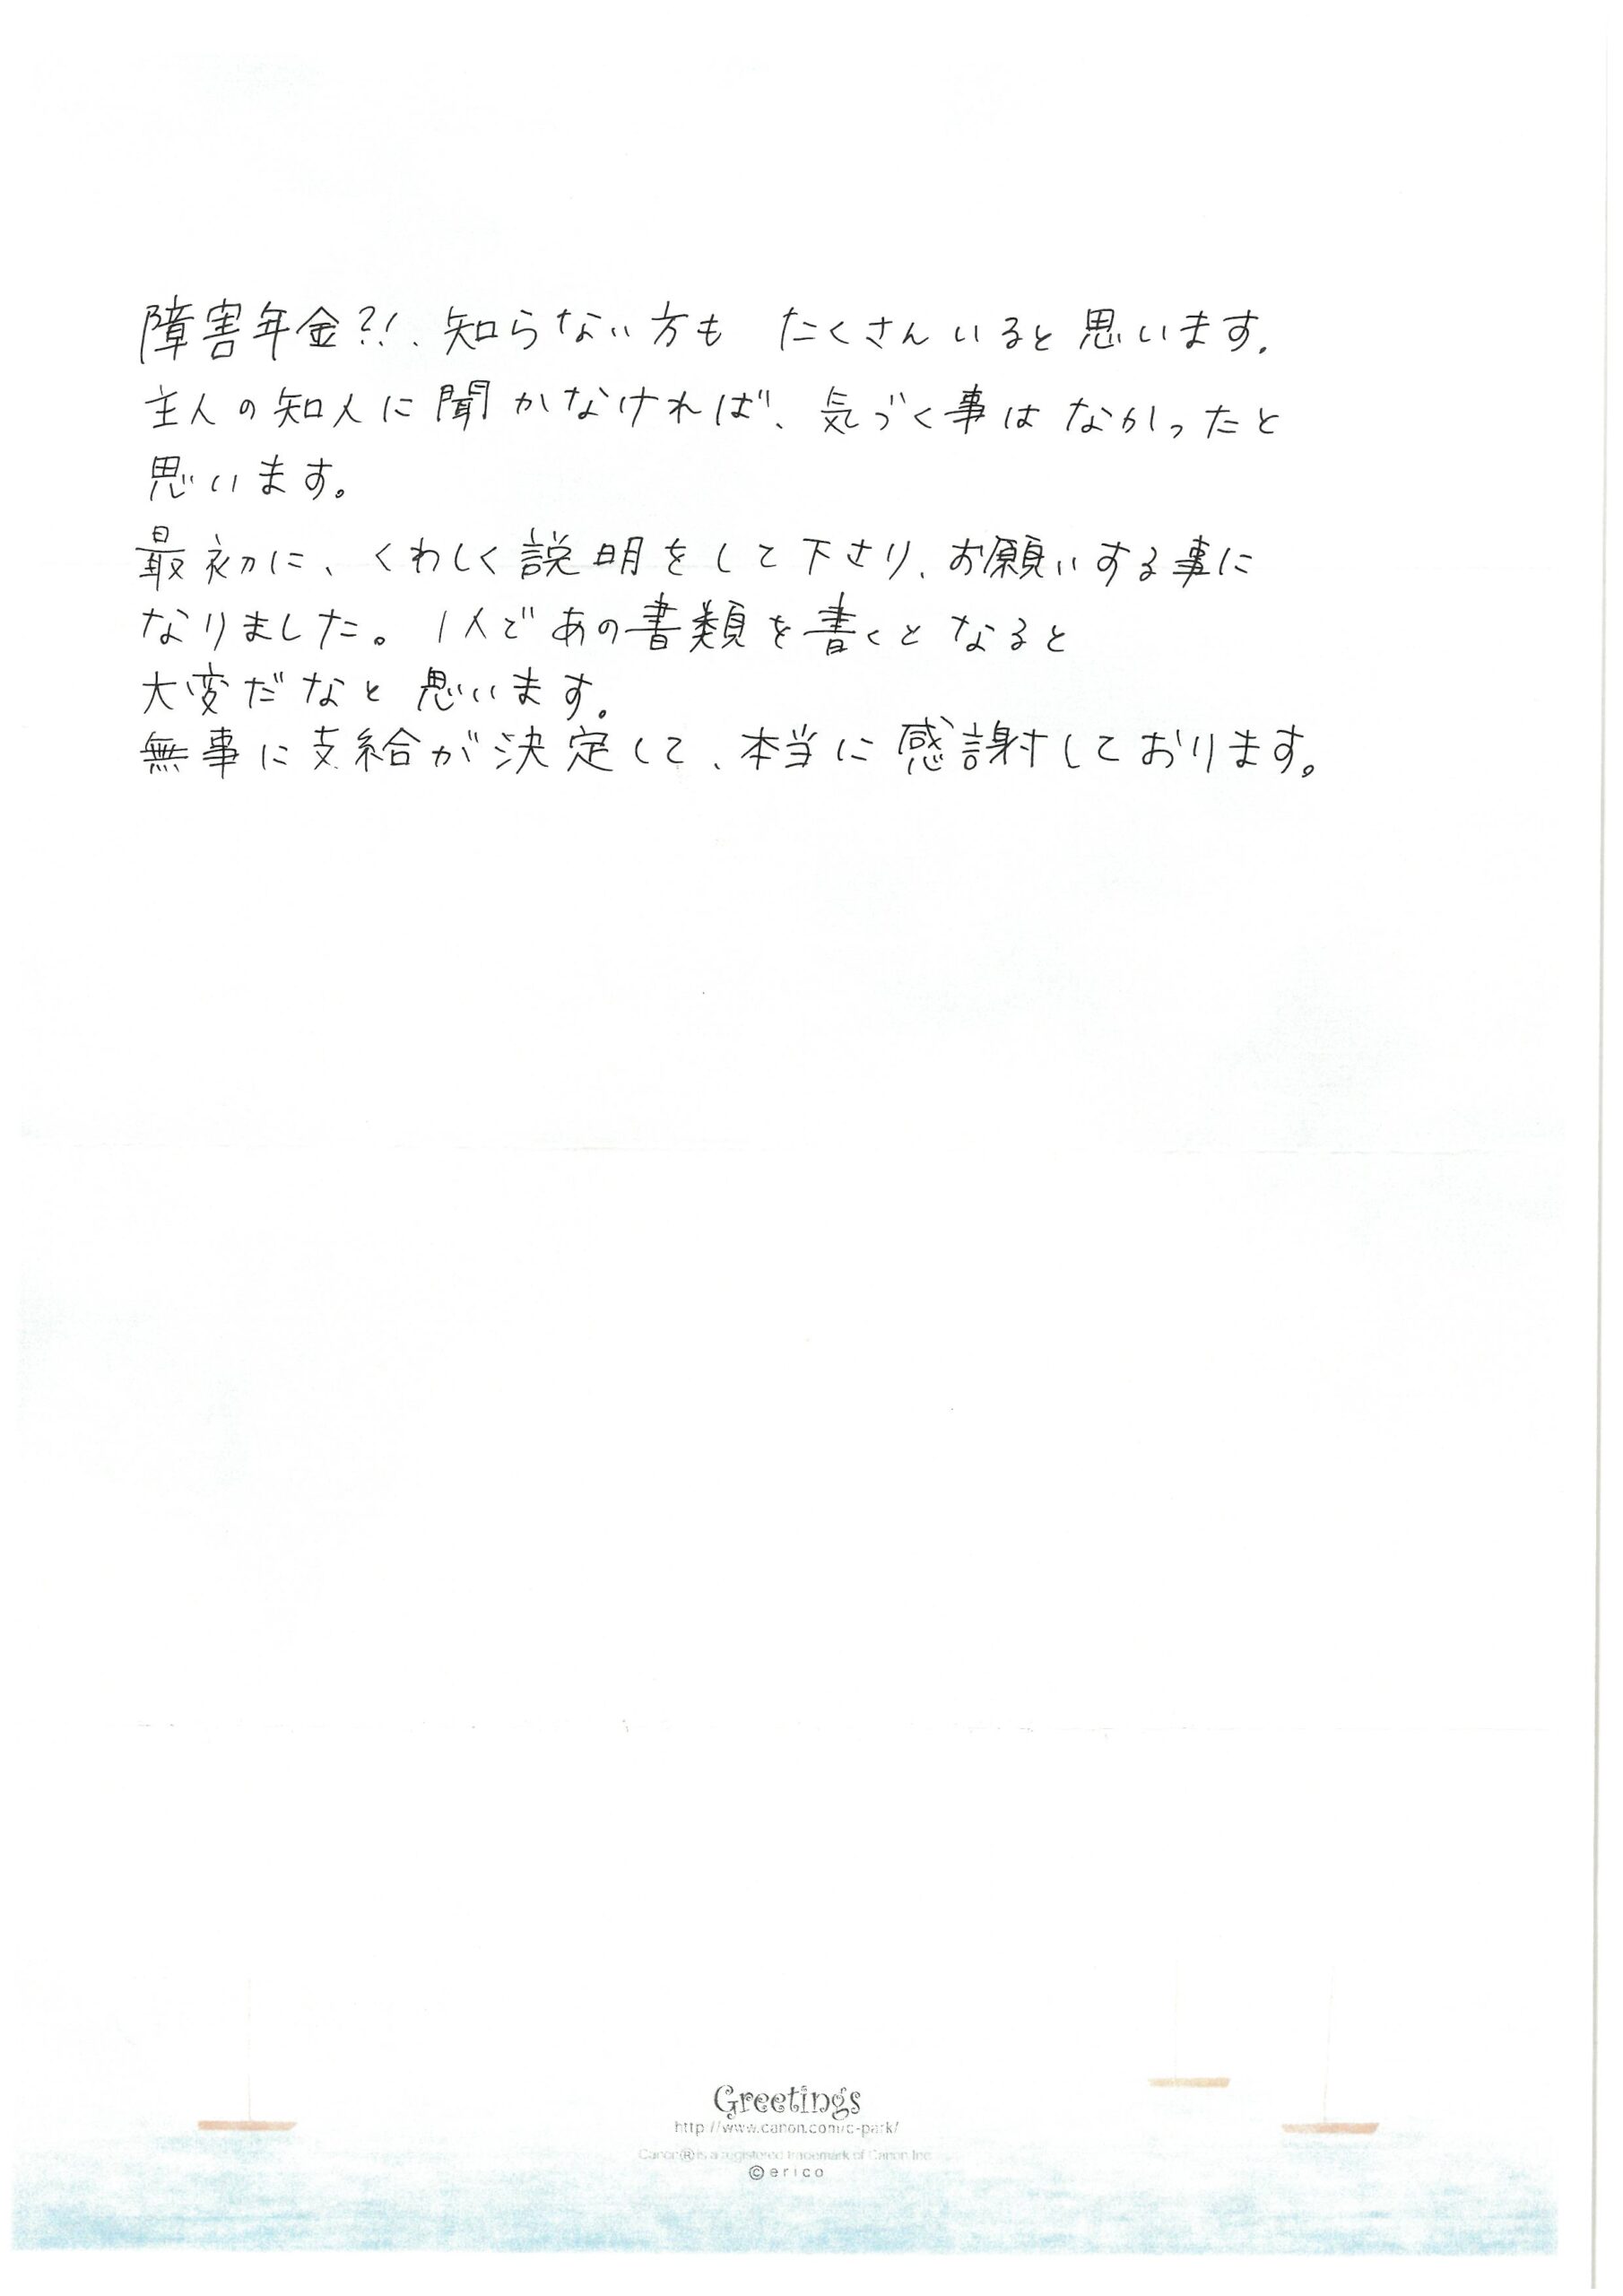 障害年金?!、知らない方も たくさんいると思います。
主人の知人に聞かなければ、気づく事はなかったと
思います。
最初に、くわしく説明をして下さり、お願いする事に
なりました。1人であの書類を書くとなると
大変だなと思います。
無事に支給が決定して、本当に感謝しております。
Greetings
http://www.canon.com/c-park/
Canon® is a registered trademark of Canon Inc.
©erico